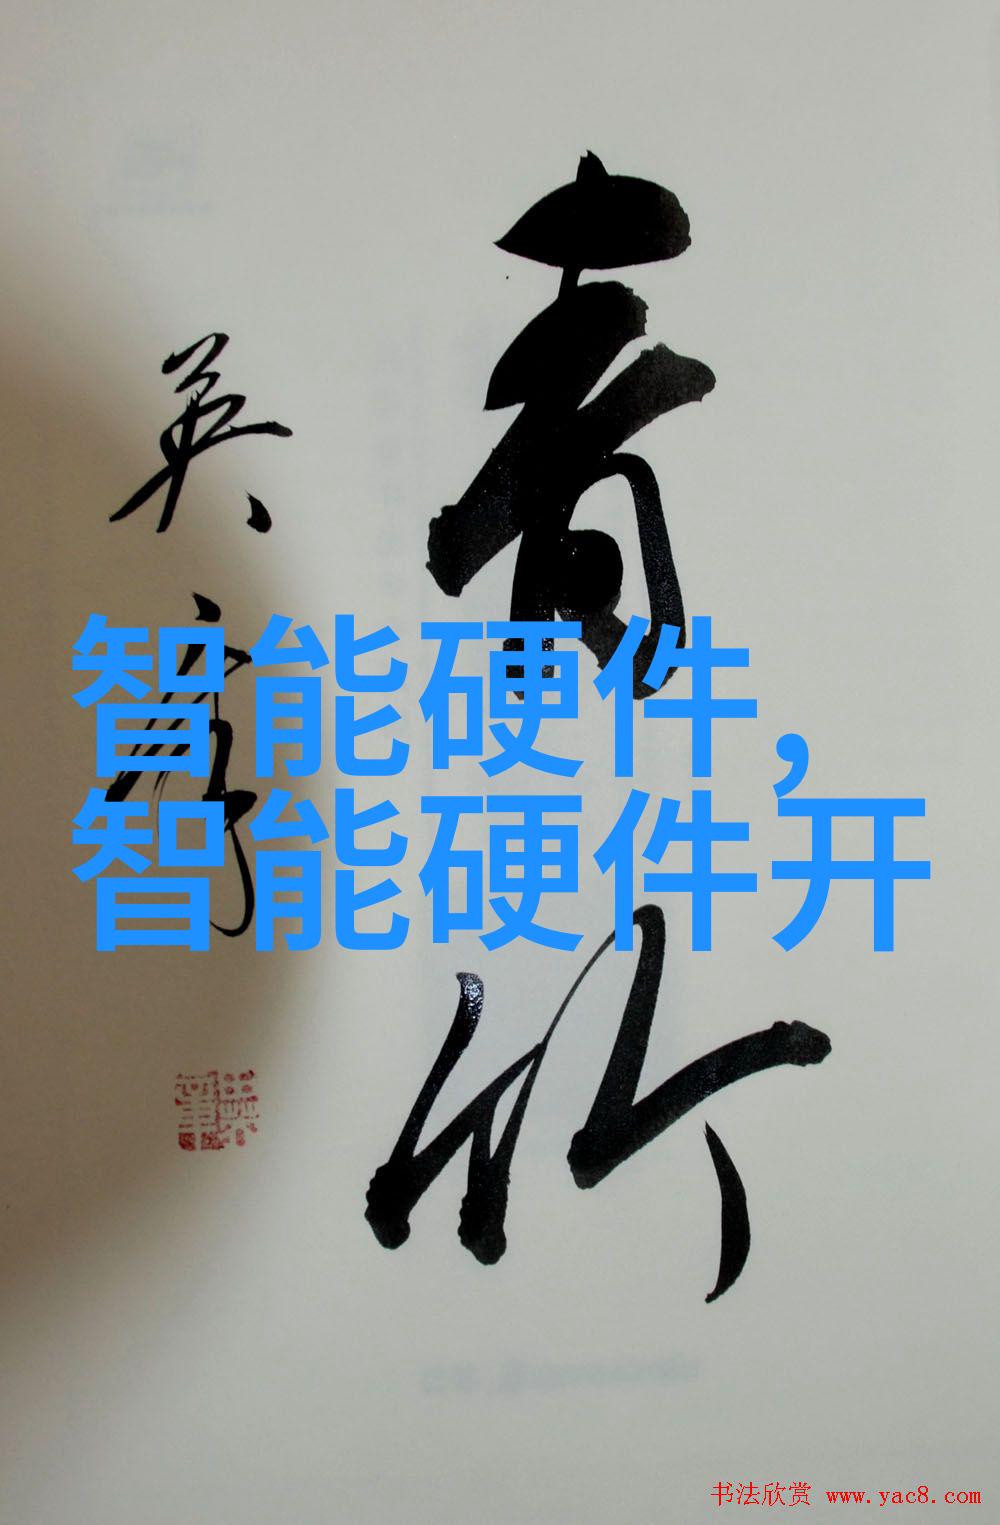 青竹
英序
智能硬件，
智能硬件开
书法欣赏 www.yac8.com